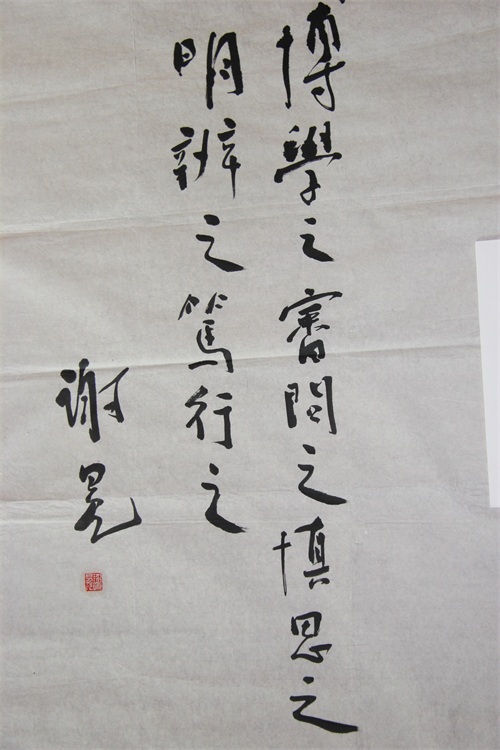 博學之審問之慎思之
明辨之篤行之
謝冕